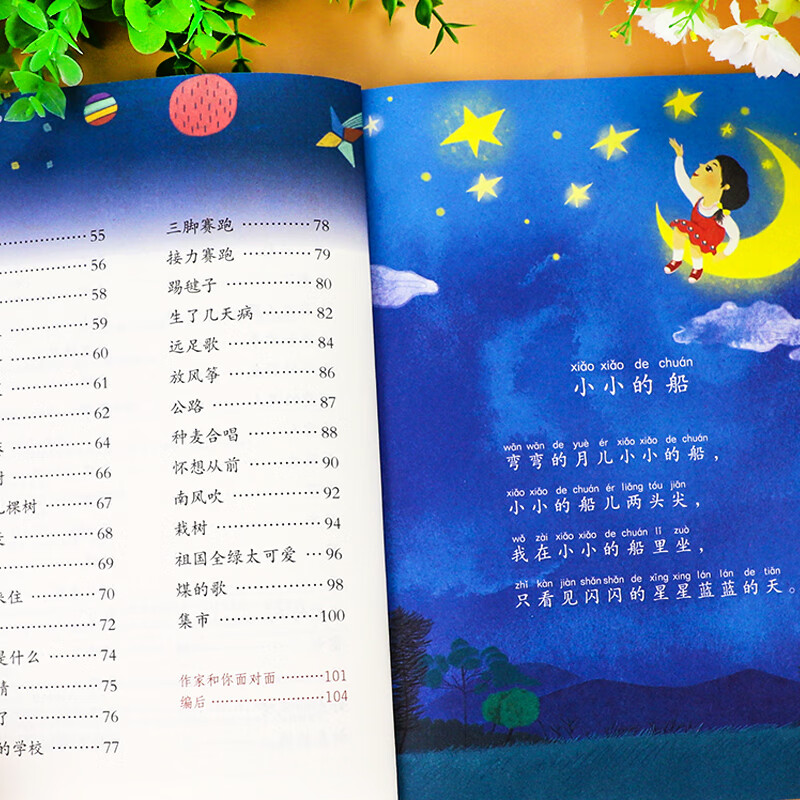 55
56
58
59
60
61
62
64
66
棵树 67
68
69
住 70
72
是什么 74
75
了 76
的学校 77
三脚赛跑 78
接力赛跑 79
踢毽子 80
生了几天病 82
远足歌 84
放风筝 86
公路 87
种麦合唱 88
怀想从前 90
南风吹 92
栽树 94
祖国全绿太可爱 96
煤的歌 98
集市 100
作家和你面对面 101
编后 104
xiǎo xiǎo de chuán
小小的船
wān wān de yuè ér xiǎo xiǎo de chuán
弯弯的月儿小小的船，
xiǎo xiǎo de chuán ér liǎng tóu jiān
小小的船儿两头尖，
wǒ zài xiǎo xiǎo de chuán lǐ zuò
我在小小的船里坐，
zhǐ kàn jiàn shǎn shǎn de xīng xing lán lán de tiān
只看见闪闪的星星蓝蓝的天。